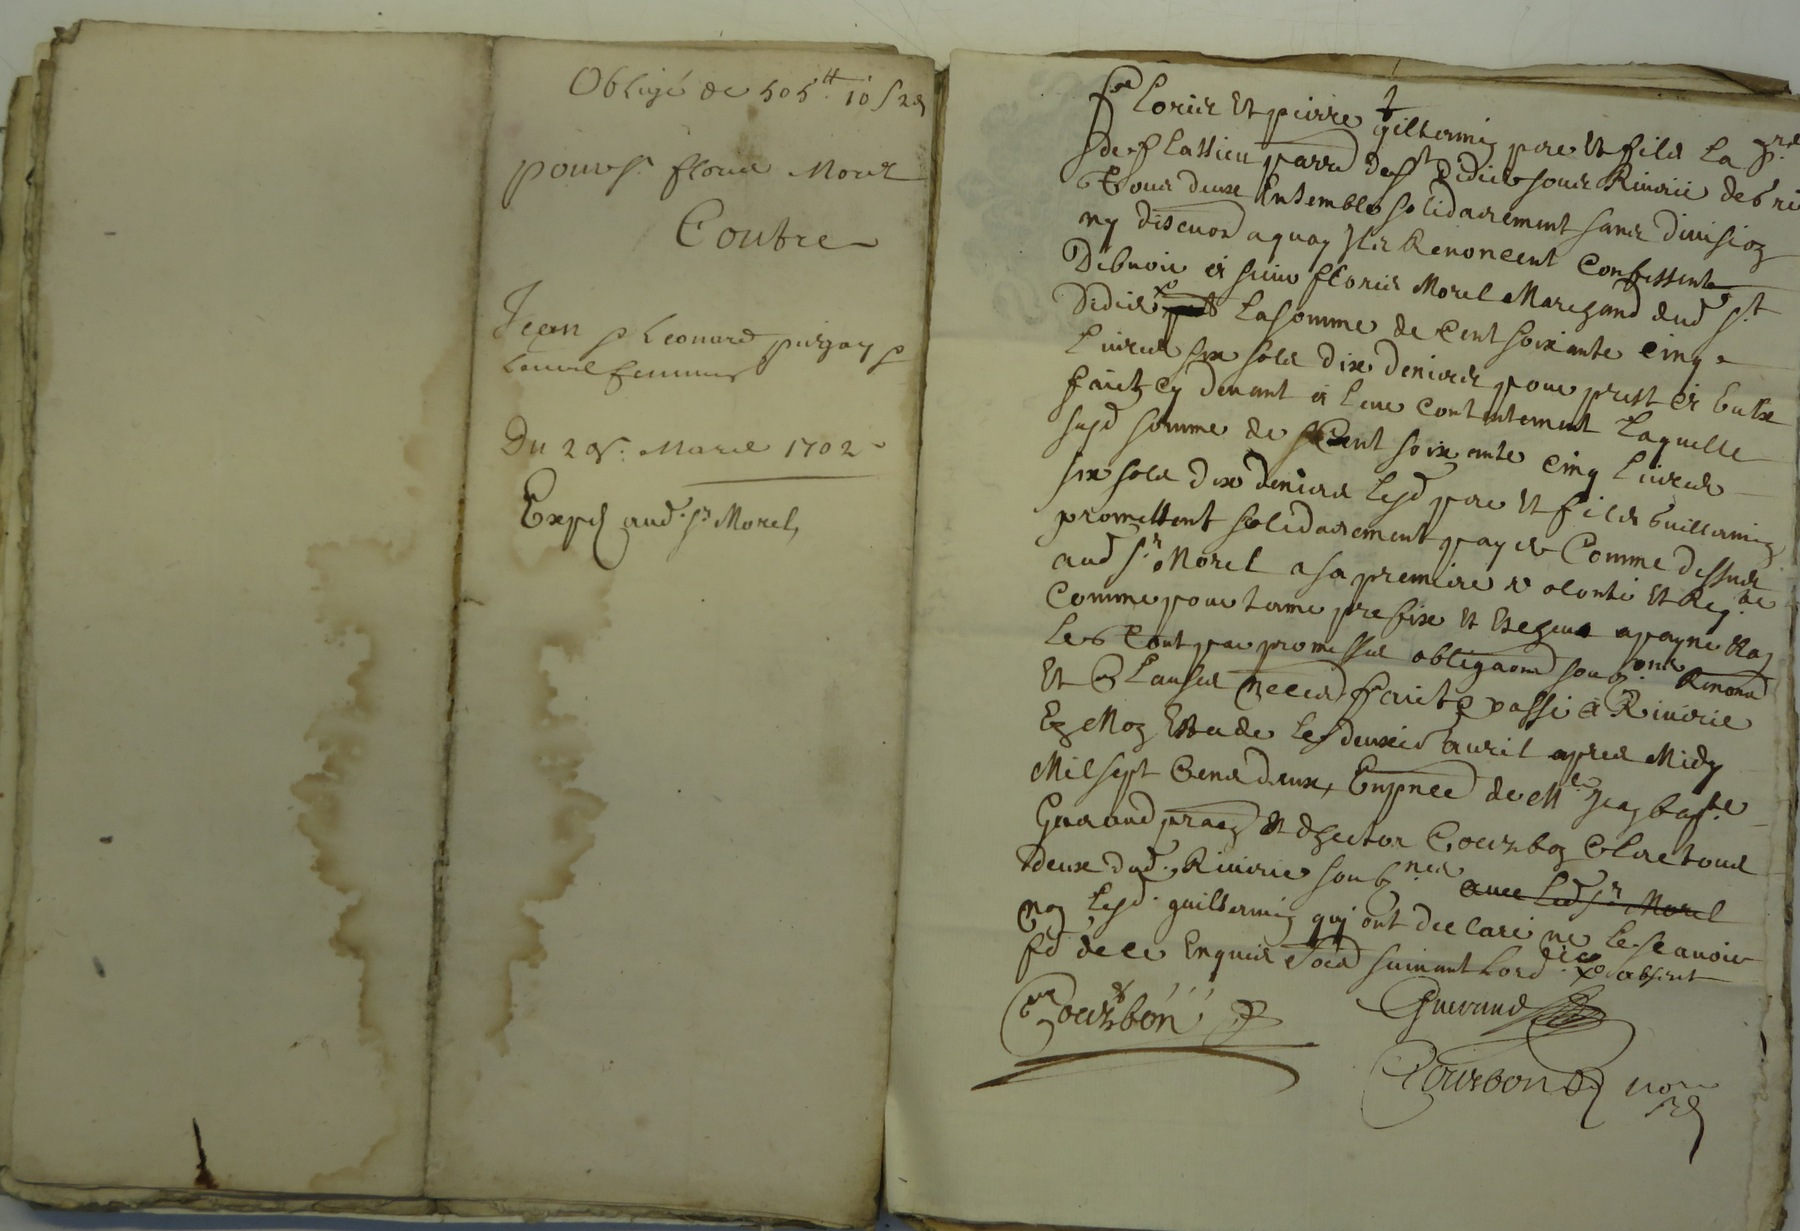 Obligé de 505 ₶ 10 s 2 d
pour sr. fleurie Morel
Contre
Jean & Leonard &
Du 28. Mars 1702
Exped aud. sr Morel
fleurie et pierre guillermin pere et fils
de flassieu parre de st Didier sous Riverie
tous deux Ensemble solidairement sans division
ny discuon a quoy ils Renoncent Confessent
Debvoir a sieur fleurie Morel Marchand dud st
Didier La somme de cent soixante cinq
Livres six sols dix deniers pour prest a eulx
faict cy devant a leur contentement Laquelle
susd somme de cent soixante cinq Livres
six sols dix deniers lesd pere et fils guillermin
promettent solidairement payer Comme dessus
aud sr. Morel a sa premiere volonté et Reqte
Comme pour terme prefixe et a payne
Le tout par promesses obligaons Renond
et Clauses necess faict & passé a Riverie
En Mon Estude Le deuxie avril apres Midy
Mil sept Cens deux, En pnce de Me Jean bapte
Guerand et hector Courbon Clerc tous
deux dud. Riverie soubz nes avec led sr Morel
non Lesd. guillermin quy ont declaré ne le scavoir
fe de ce Enquis suivant Lord. absent
Courbon
Guerand
Courbon no re